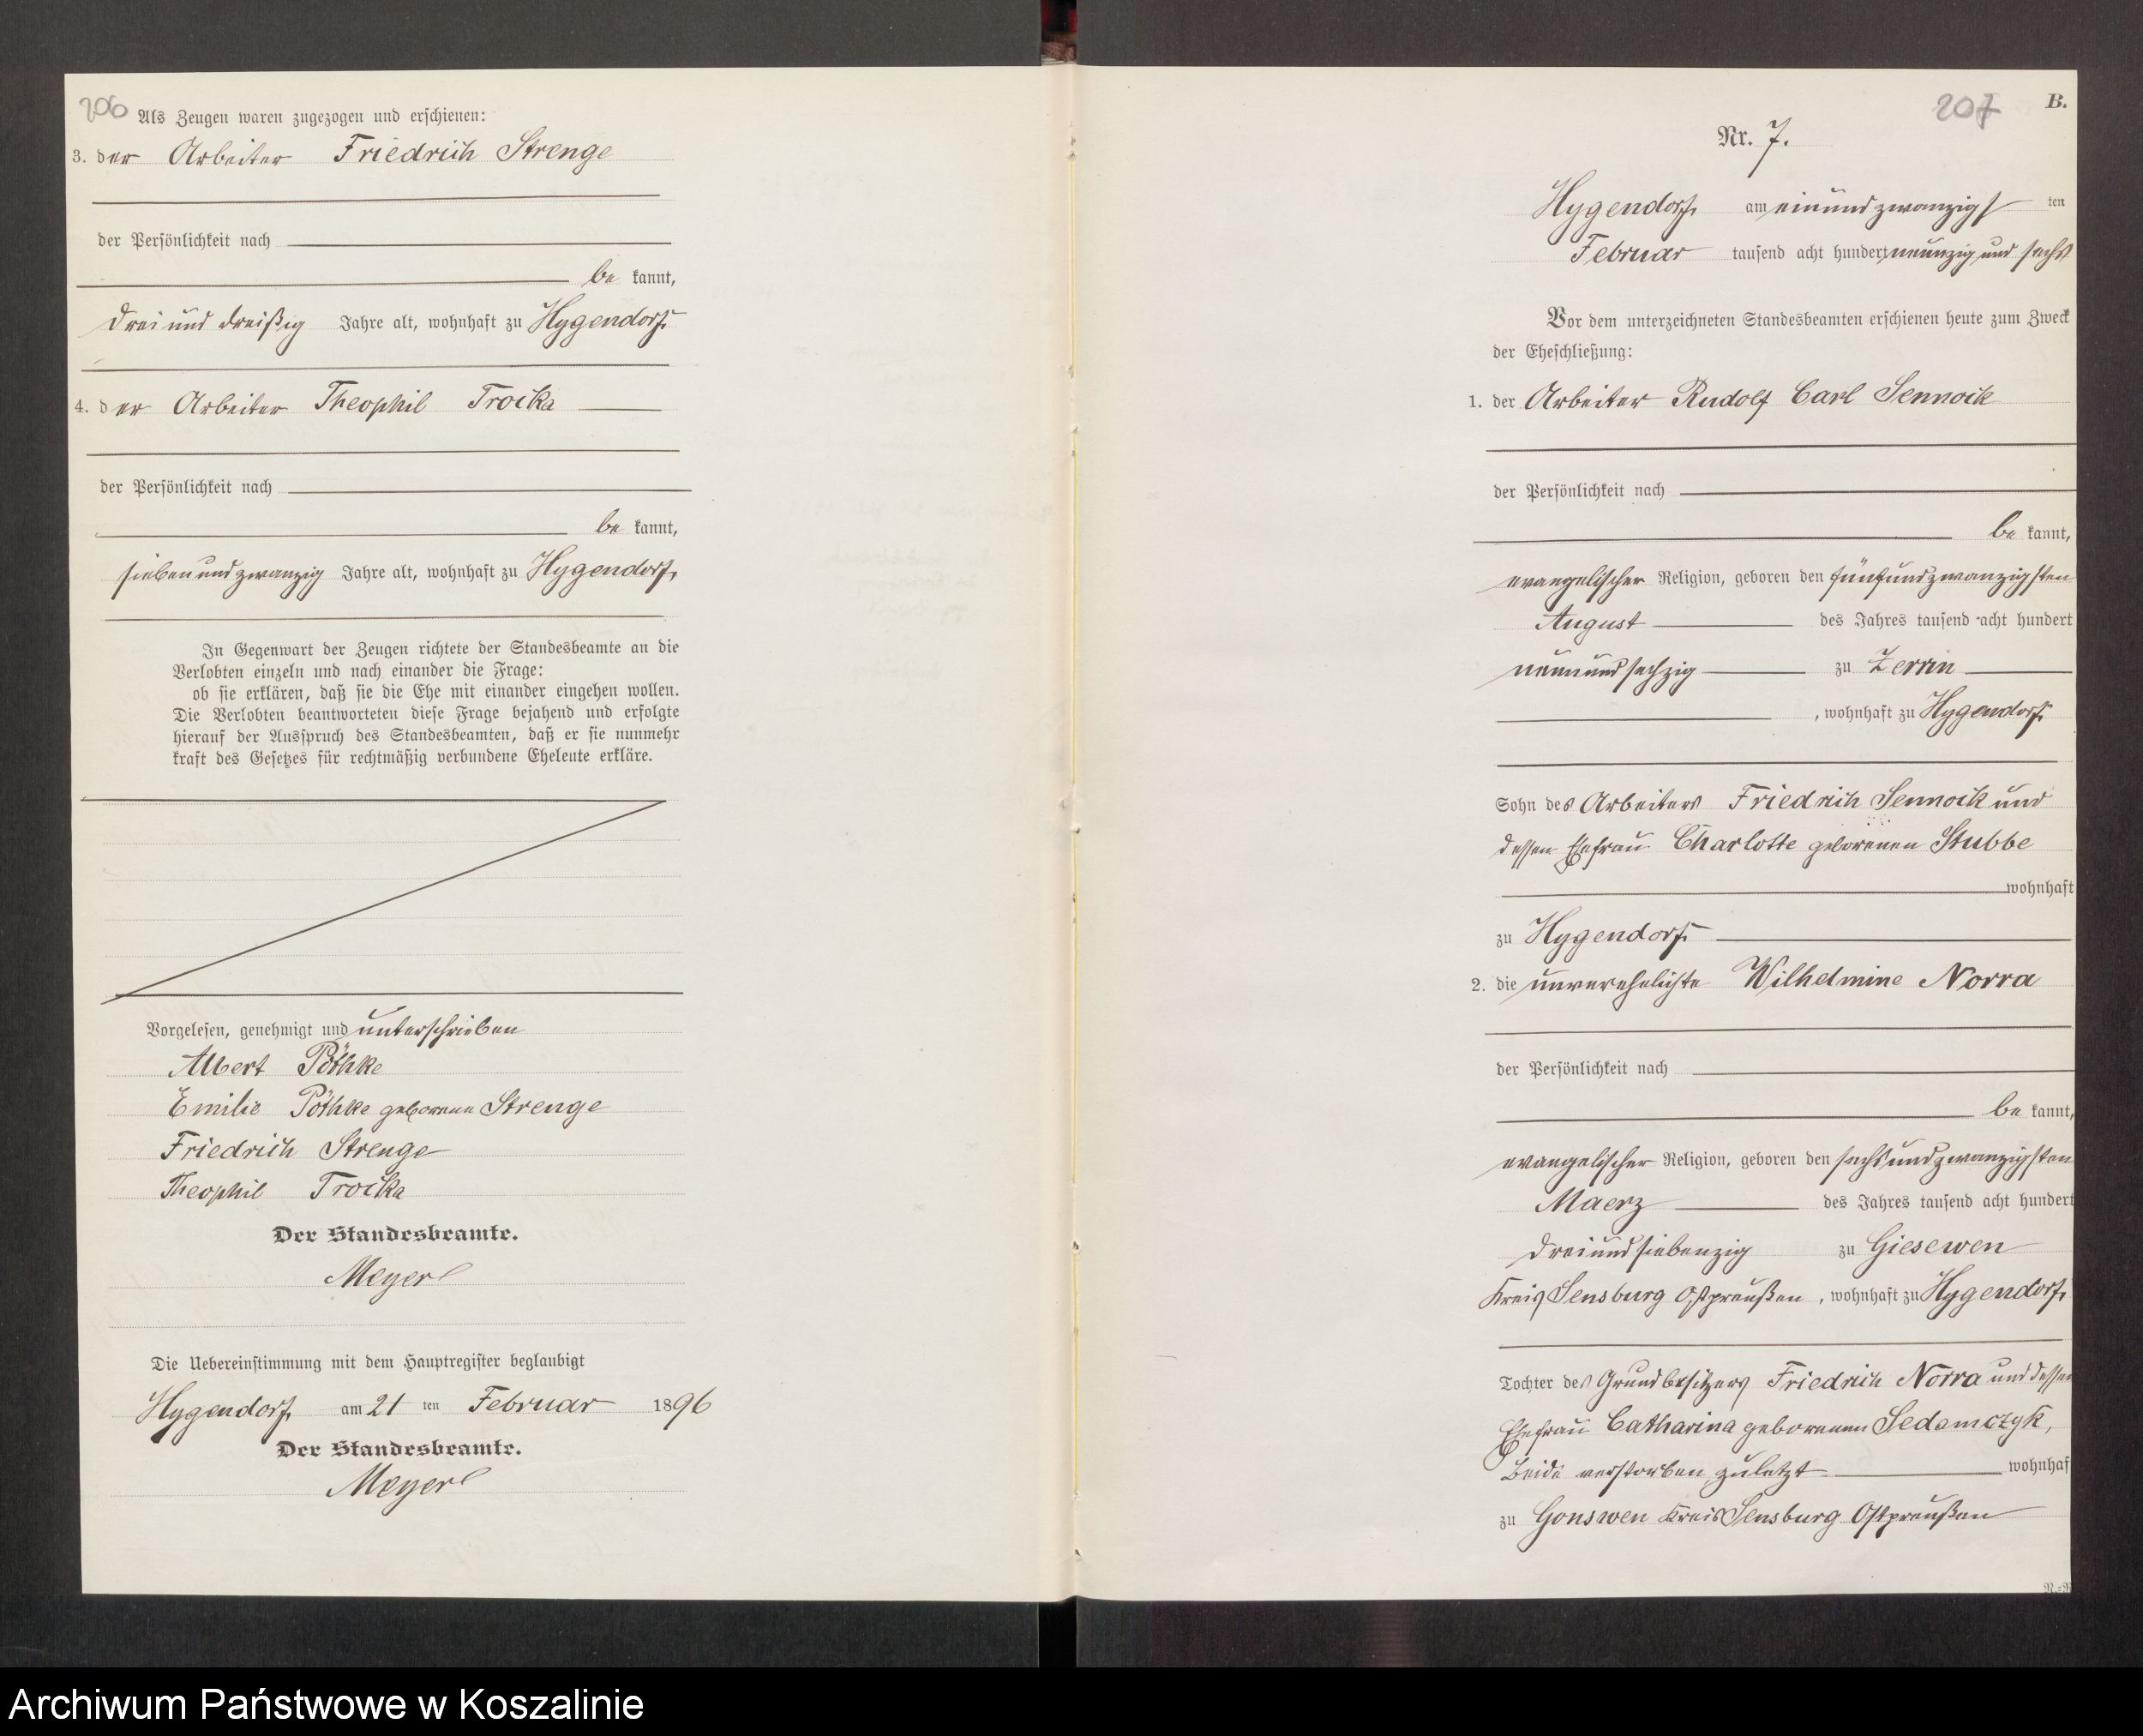 206
Als Zeugen waren zugezogen und erschienen:
3. der Arbeiter Friedrich Strenge
der Persönlichkeit nach
be kannt,
drei und dreißig Jahre alt, wohnhaft zu Hygendorf
4. der Arbeiter Theophil Trocka
der Persönlichkeit nach
be kannt,
sieben und zwanzig Jahre alt, wohnhaft zu Hygendorf,
In Gegenwart der Zeugen richtete der Standesbeamte an die
Verlobten einzeln und nach einander die Frage:
ob sie erklären, daß sie die Ehe mit einander eingehen wollen.
Die Verlobten beantworteten diese Frage bejahend und erfolgte
hierauf der Ausspruch des Standesbeamten, daß er sie nunmehr
kraft des Gesetzes für rechtmäßig verbundene Eheleute erkläre.
Vorgelesen, genehmigt und unterschrieben
Albert Pöthke
Emilie Pöthke geborene Strenge
Friedrich Strenge
Theophil Trocka
Der Standesbeamte.
Meyer
Die Uebereinstimmung mit dem Hauptregister beglaubigt
Hygendorf, am 21 ten Februar 1896
Der Standesbeamte.
Meyer
207
B.
Nr. 7.
Hygendorf, am einundzwanzigs ten
Februar tausend acht hundert neunzig und sechs
Vor dem unterzeichneten Standesbeamten erschienen heute zum Zweck
der Eheschließung:
1. der Arbeiter Rudolf Carl Sennock
der Persönlichkeit nach
be kannt,
evangelischer Religion, geboren den fünfundzwanzigsten
August des Jahres tausend acht hundert
neunundsechzig zu Zerrin
, wohnhaft zu Hygendorf
Sohn des Arbeiters Friedrich Sennock und
dessen Ehefrau Charlotte geborenen Stubbe
wohnhaft
zu Hygendorf
2. die unverehelichte Wilhelmine Norra
der Persönlichkeit nach
be kannt,
evangelischer Religion, geboren den sechsundzwanzigsten
Maerz des Jahres tausend acht hundert
dreiundsiebenzig zu Giesewen
Kreis Sensburg Ostpreußen, wohnhaft zu Hygendorf,
Tochter des Grundbesitzers Friedrich Norra und dessen
Ehefrau Catharina geborenen Sedamczyk,
Beide verstorben, zuletzt wohnhaf
zu Gonswen Kreis Sensburg Ostpreußen
Archiwum Państwowe w Koszalinie